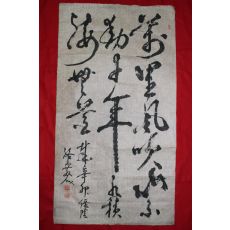 萬里風吹山不
動千年水積
海無量
辛卯